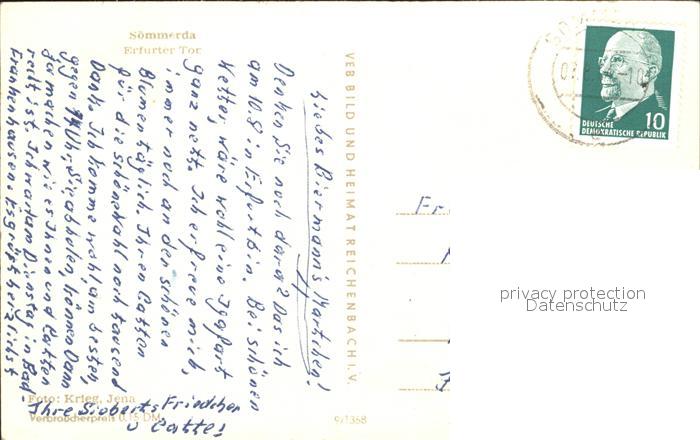 Sömmerda
Erfurter Tor
VEB BILD UND HEIMAT REICHENBACH I. V.
DEUTSCHE
DEMOKRATISCHE REPUBLIK
10
Liebes Biermann's Martchen!
Denken Sie noch daran? Das ich
am 10.8 in Erfurt bin. Bei schönen
Wetter, wäre wohl eine
ganz nett. Ich erfreue mich,
imme noch an den schönen
Blumen täglich. Ihren Gatten
für die schöne Wahl noch tausend
Dank. Ich komme wohl am besten,
gegen Uhr, Sie abholen, können Dann
ja machen wie es Ihnen und Gatten
recht ist. Ich war am Dienstag in Bad-
Frankenhausen. Es grüsst herzlichst
Ihre Sieberts Friedchen
u Gatte!
Foto: Krieg, Jena
Verbraucherpreis 0,15 DM
9/1368
Fr
privacy protection
Datenschutz